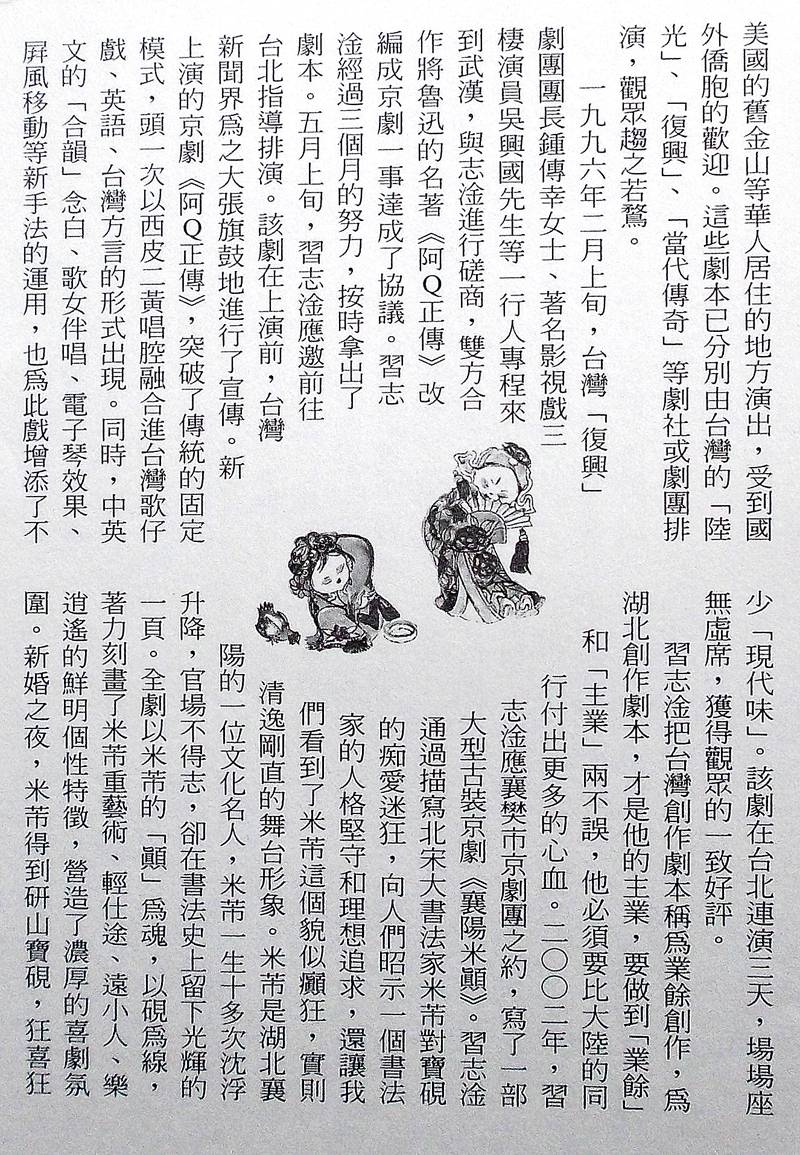 美國的舊金山等華人居住的地方演出，受到國
外僑胞的歡迎。這些劇本已分別由台灣的「陸
光」、「復興」、「當代傳奇」等劇社或劇團排
演，觀眾趨之若鶩。
一九九六年二月上旬，台灣「復興」
劇團團長鍾傳幸女士、著名影視戲三
棲演員吳興國先生等一行人專程來
到武漢，與志淦進行磋商，雙方合
作將魯迅的名著《阿Q正傳》改
編成京劇一事達成了協議。習志
淦經過三個月的努力，按時拿出了
劇本。五月上旬，習志淦應邀前往
台北指導排演。該劇在上演前，台灣
新聞界爲之大張旗鼓地進行了宣傳。新
上演的京劇《阿Q正傳》，突破了傳統的固定
模式，頭一次以西皮二黃唱腔融合進台灣歌仔
戲、英語、台灣方言的形式出現。同時，中英
文的「合韻」念白、歌女伴唱、電子琴效果、
屏風移動等新手法的運用，也爲此戲增添了不
少「現代味」。該劇在台北連演三天，場場座
無虛席，獲得觀眾的一致好評。
習志淦把台灣創作劇本稱爲業餘創作，爲
湖北創作劇本，才是他的主業，要做到「業餘」
和「主業」兩不誤，他必須要比大陸的同
行付出更多的心血。二〇〇二年，習
志淦應襄樊市京劇團之約，寫了一部
大型古裝京劇《襄陽米顛》。習志淦
通過描寫北宋大書法家米芾對寶硯
的痴愛迷狂，向人們昭示一個書法
家的人格堅守和理想追求，還讓我
們看到了米芾這個貌似癲狂，實則
清逸剛直的舞台形象。米芾是湖北襄
陽的一位文化名人，米芾一生十多次沈浮
升降，官場不得志，卻在書法史上留下光輝的
一頁。全劇以米芾的「顛」爲魂，以硯爲線，
著力刻畫了米芾重藝術、輕仕途、遠小人、樂
逍遙的鮮明個性特徵，營造了濃厚的喜劇氛
圍。新婚之夜，米芾得到研山寶硯，狂喜狂